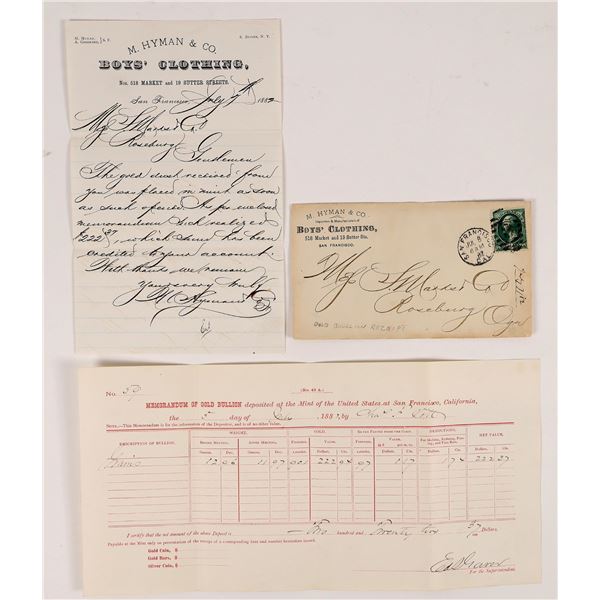 M. HYMAN & CO.
BOYS' CLOTHING,
Nos. 518 MARKET and 19 SUTTER STREETS.
San Francisco, July 7th 1882
Roseburg
Gentlemen
The gold dust received from
you was placed in mint as soon
as such opened As per enclosed
memorandum Such realized
$222 37, which sum has been
credited to your account.
With thanks we remain
Yours very truly
M. Hyman & Co
M. HYMAN & CO.
BOYS' CLOTHING,
518 Market and 19 Sutter Sts.
SAN FRANCISCO.
SAN FRANCISCO
CAL
Roseburg
Ogn
GOLD BULLION RECEIPT
No. 59
(No. 42 A.)
MEMORANDUM OF GOLD BULLION deposited at the Mint of the United States, at San Francisco, California,
the day of 188 , by
NOTE.—This Memorandum is for the information of the Depositor, and is of no other value.
DESCRIPTION OF BULLION.
WEIGHT.
GOLD.
SILVER PARTED FROM THE GOLD.
DEDUCTIONS.
NET VALUE.
BEFORE MELTING.
AFTER MELTING.
FINENESS.
VALUE.
FINENESS.
VALUE.
Ounces. Dec. Ounces. Dec. Dollars. Cts. Dollars. Cts. Dollars. Cts.
Grains 12 96 11 97 901 222 94 97 1 17 1 74 222 37
I certify that the net amount of the above Deposit is Two hundred and Twenty two 37/100 Dollars.
Payable at the Mint only on presentation of the receipt of a corresponding date and number hereunto issued.
Gold Coin, $
Gold Bars, $
Silver Coin, $
For the Superintendent.